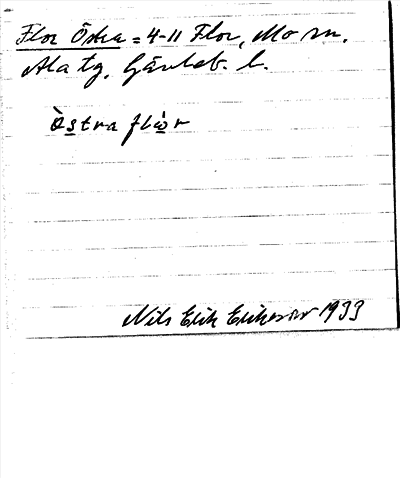 Flor Östra = 4-11 Flor, Mo sn.
Ala tg, Gävleb. l.
Òstra flȯ̀r
Nils Erik Eriksson 1933